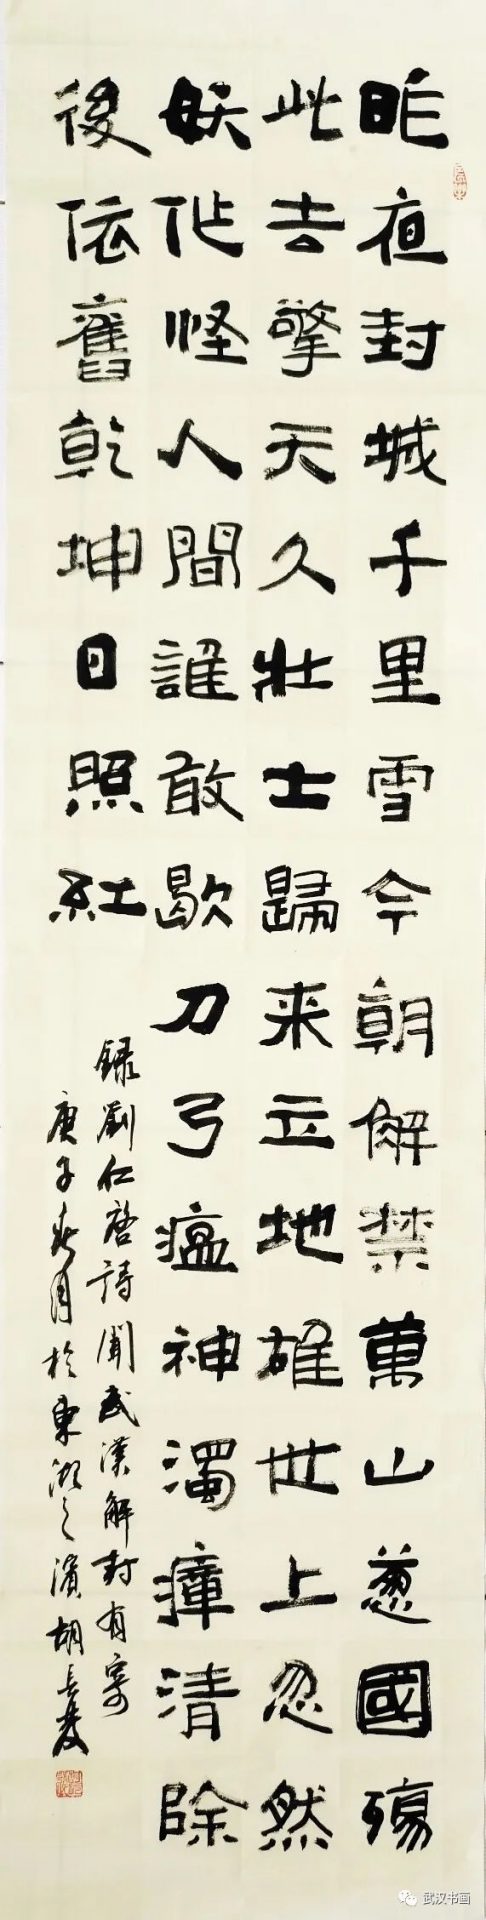 昨夜封城千里雪今朝解禁萬山葱國殤
此去擎天久壯士歸来立地雄世上忽然
妖作怪人間誰敢歇刀弓瘟神濁瘴清除
後依舊乾坤日照紅
録劉仁啓詩聞武漢解封有寄
庚子春月於東湖之濱胡長度
武汉书画